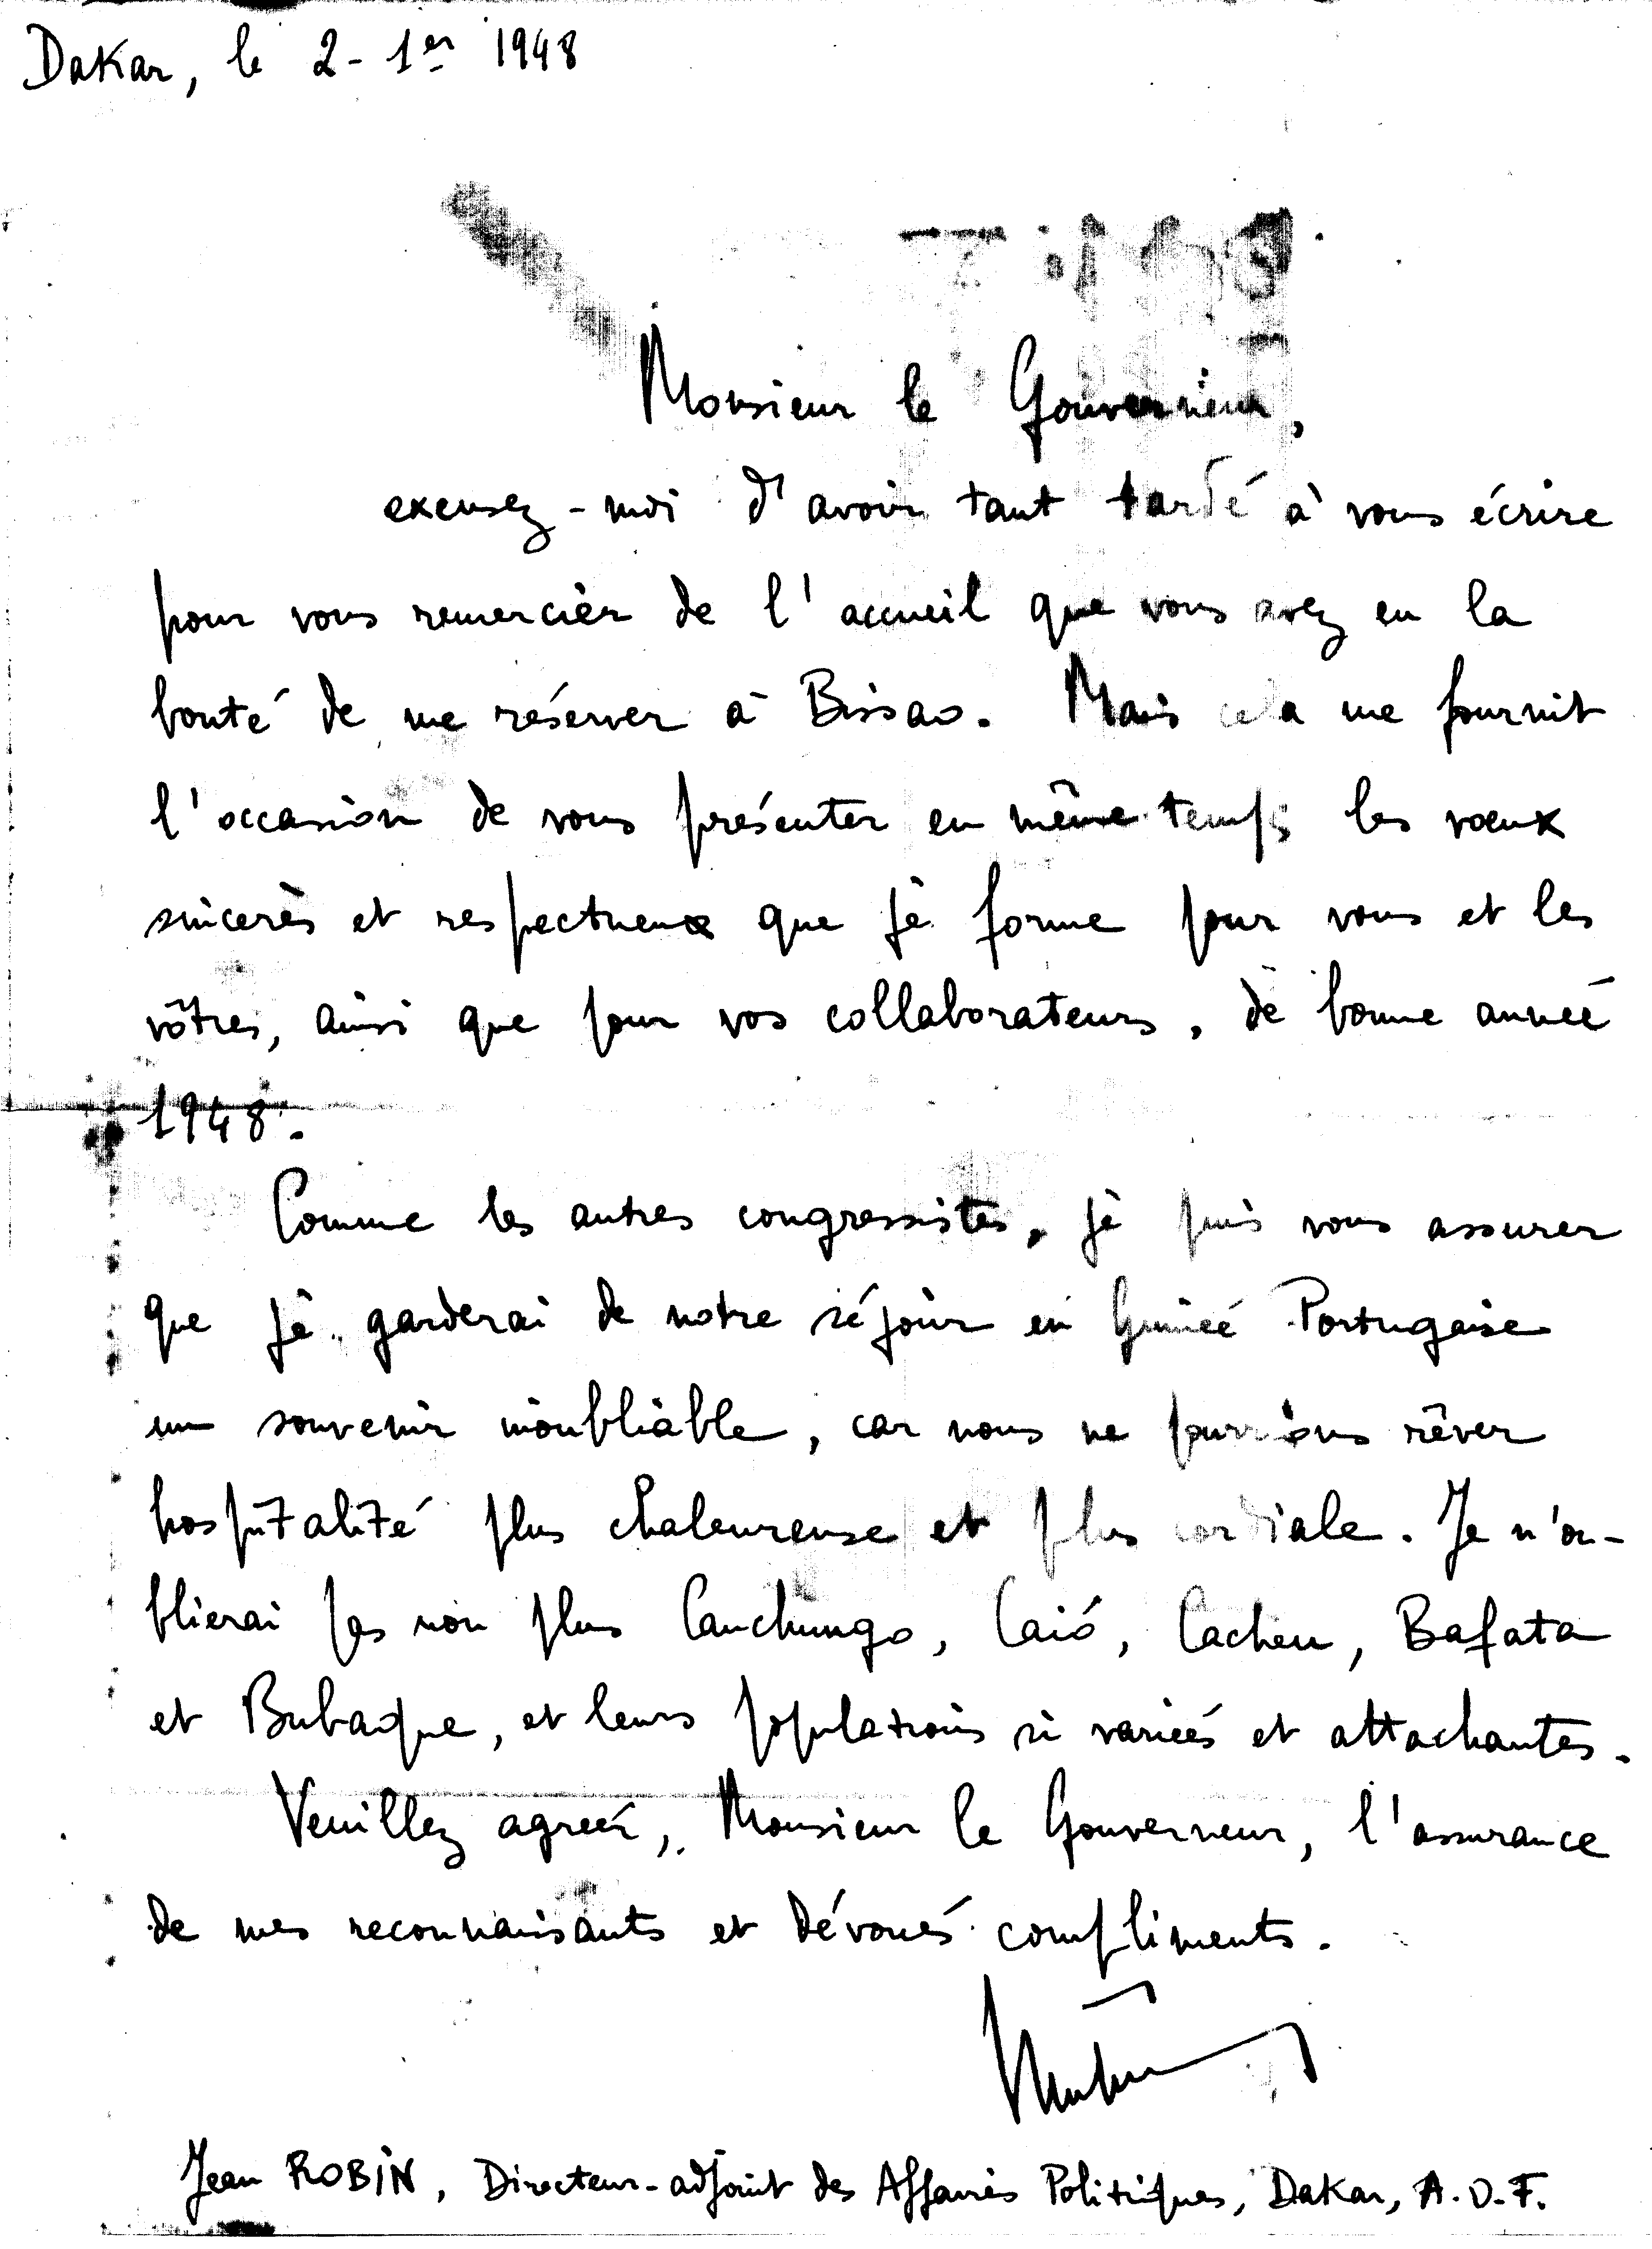 Dakar, le 2-1er 1948
Monsieur le Gouverneur,
excusez-moi d'avoir tant tardé à vous écrire
pour vous remercier de l'accueil que vous avez eu la
bonté de me réserver à Bissao. Mais cela me fournit
l'occasion de vous présenter en même temps les vœux
sincères et respectueux que je forme pour vous et les
vôtres, ainsi que pour vos collaborateurs, de bonne année
1948.
Comme les autres congressistes, je puis vous assurer
que je garderai de notre séjour en Guinée Portugaise
un souvenir inoubliable, car nous ne pouvions rêver
hospitalité plus chaleureuse et plus cordiale. Je n'ou-
blierai pas non plus Canchungo, Caió, Cacheu, Bafata
et Bubaque, et leurs populations si variées et attachantes.
Veuillez agréer, Monsieur le Gouverneur, l'assurance
de mes reconnaissants et dévoués compliments.
Jean ROBIN, Directeur-adjoint des Affaires Politiques, Dakar, A.O.F.